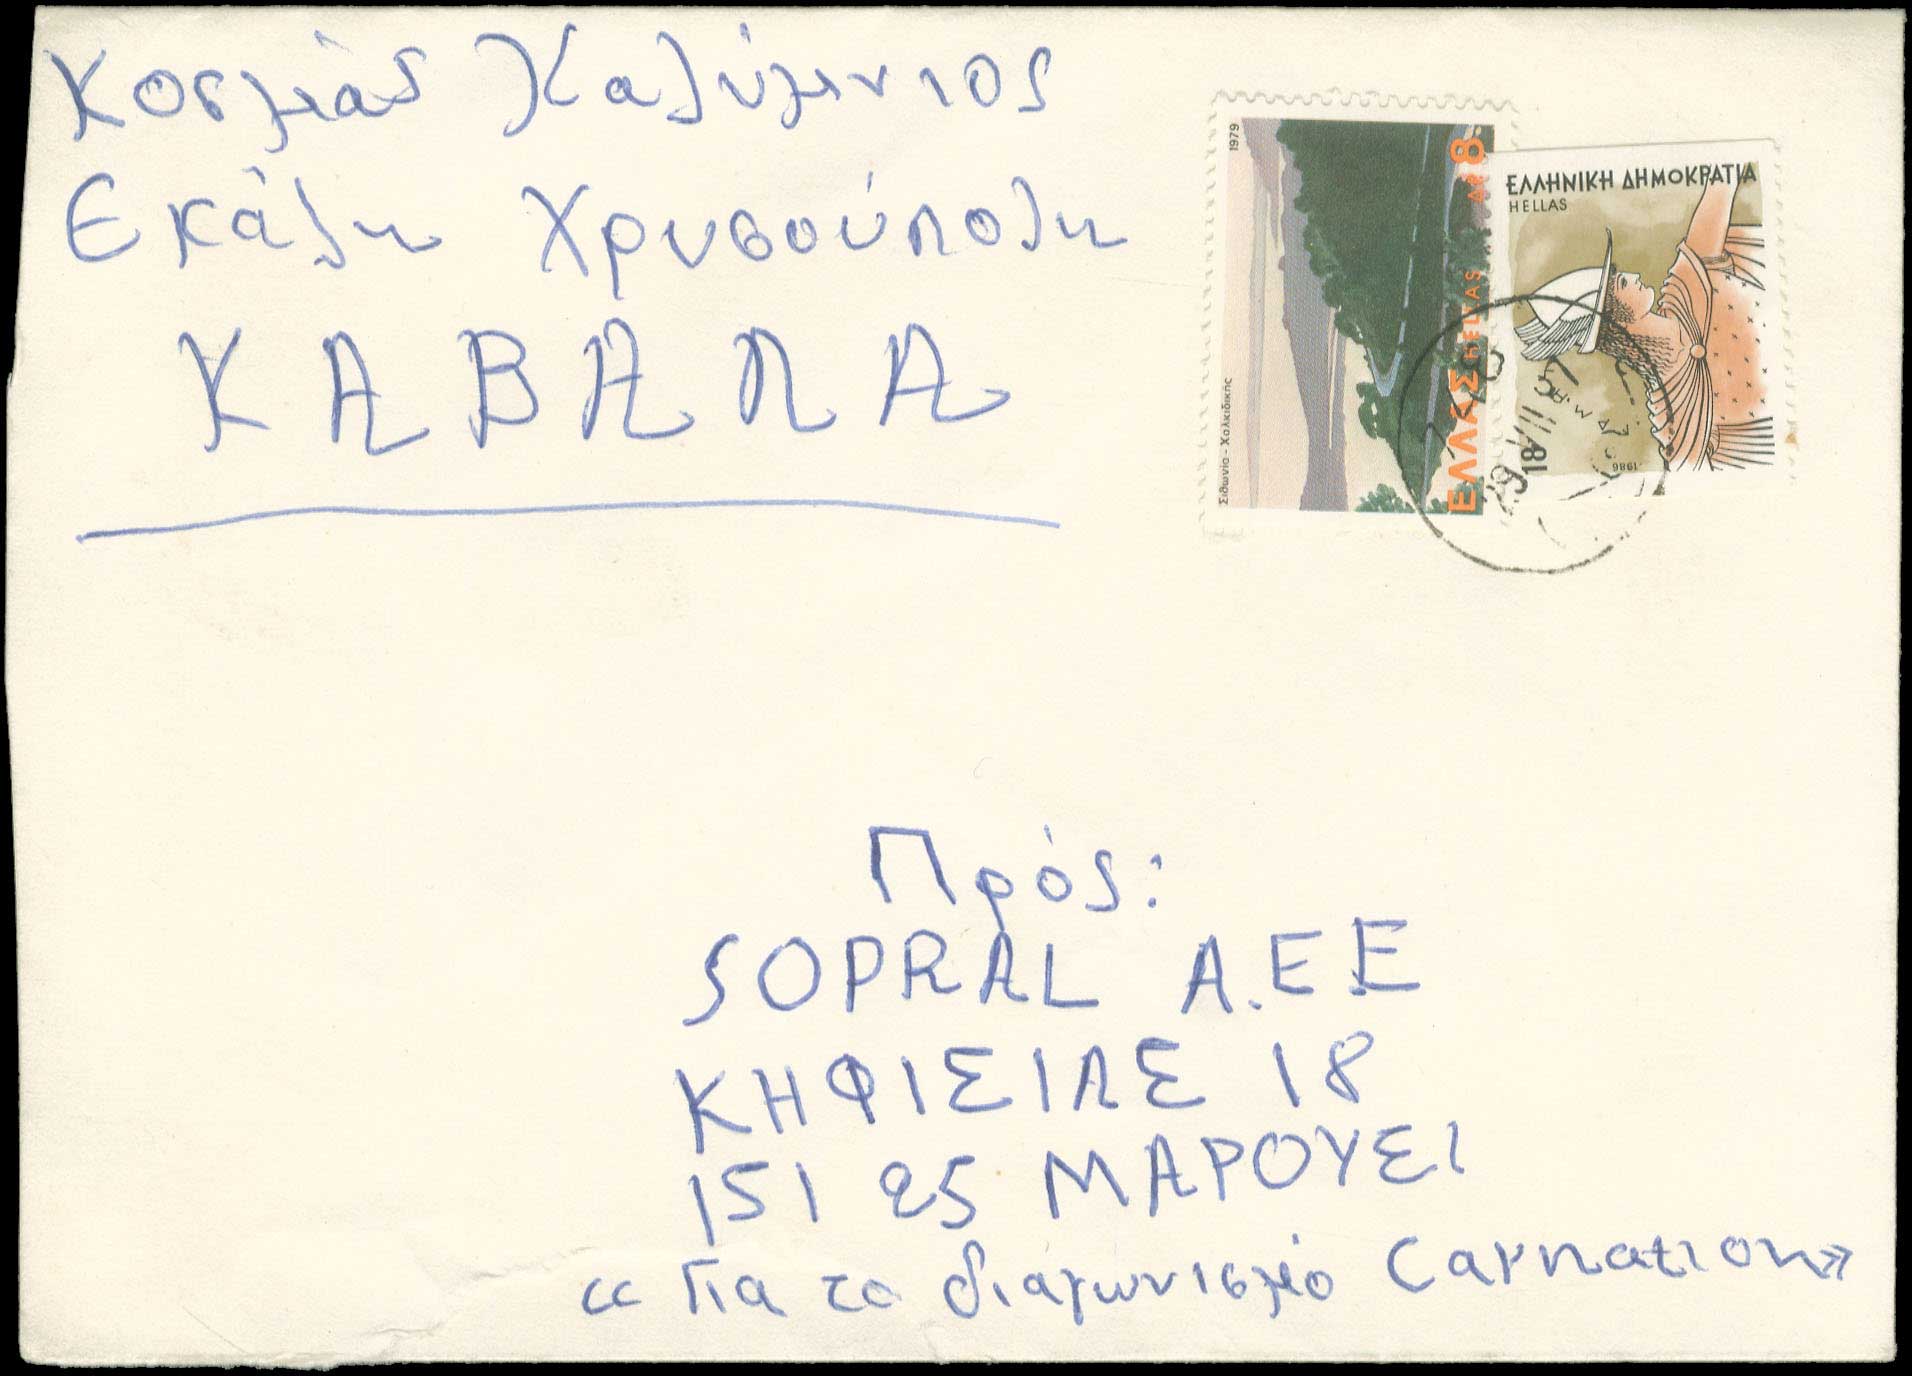 Κοσμάς Καλύμνιος
Εκάλη Χρυσούπολη
ΚΑΒΑΛΑ
1979
Σιθωνία - Χαλκιδικής
ΕΛΛΑΣ HELLAS ΔΡ 8
ΕΛΛΗΝΙΚΗ ΔΗΜΟΚΡΑΤΙΑ
HELLAS
1986
29 VIII 87
18
Πρός:
SOPRAL A.E.E
ΚΗΦΙΣΙΑΣ 18
151 25 ΜΑΡΟΥΣΙ
«Για το διαγωνισμό Carnation»